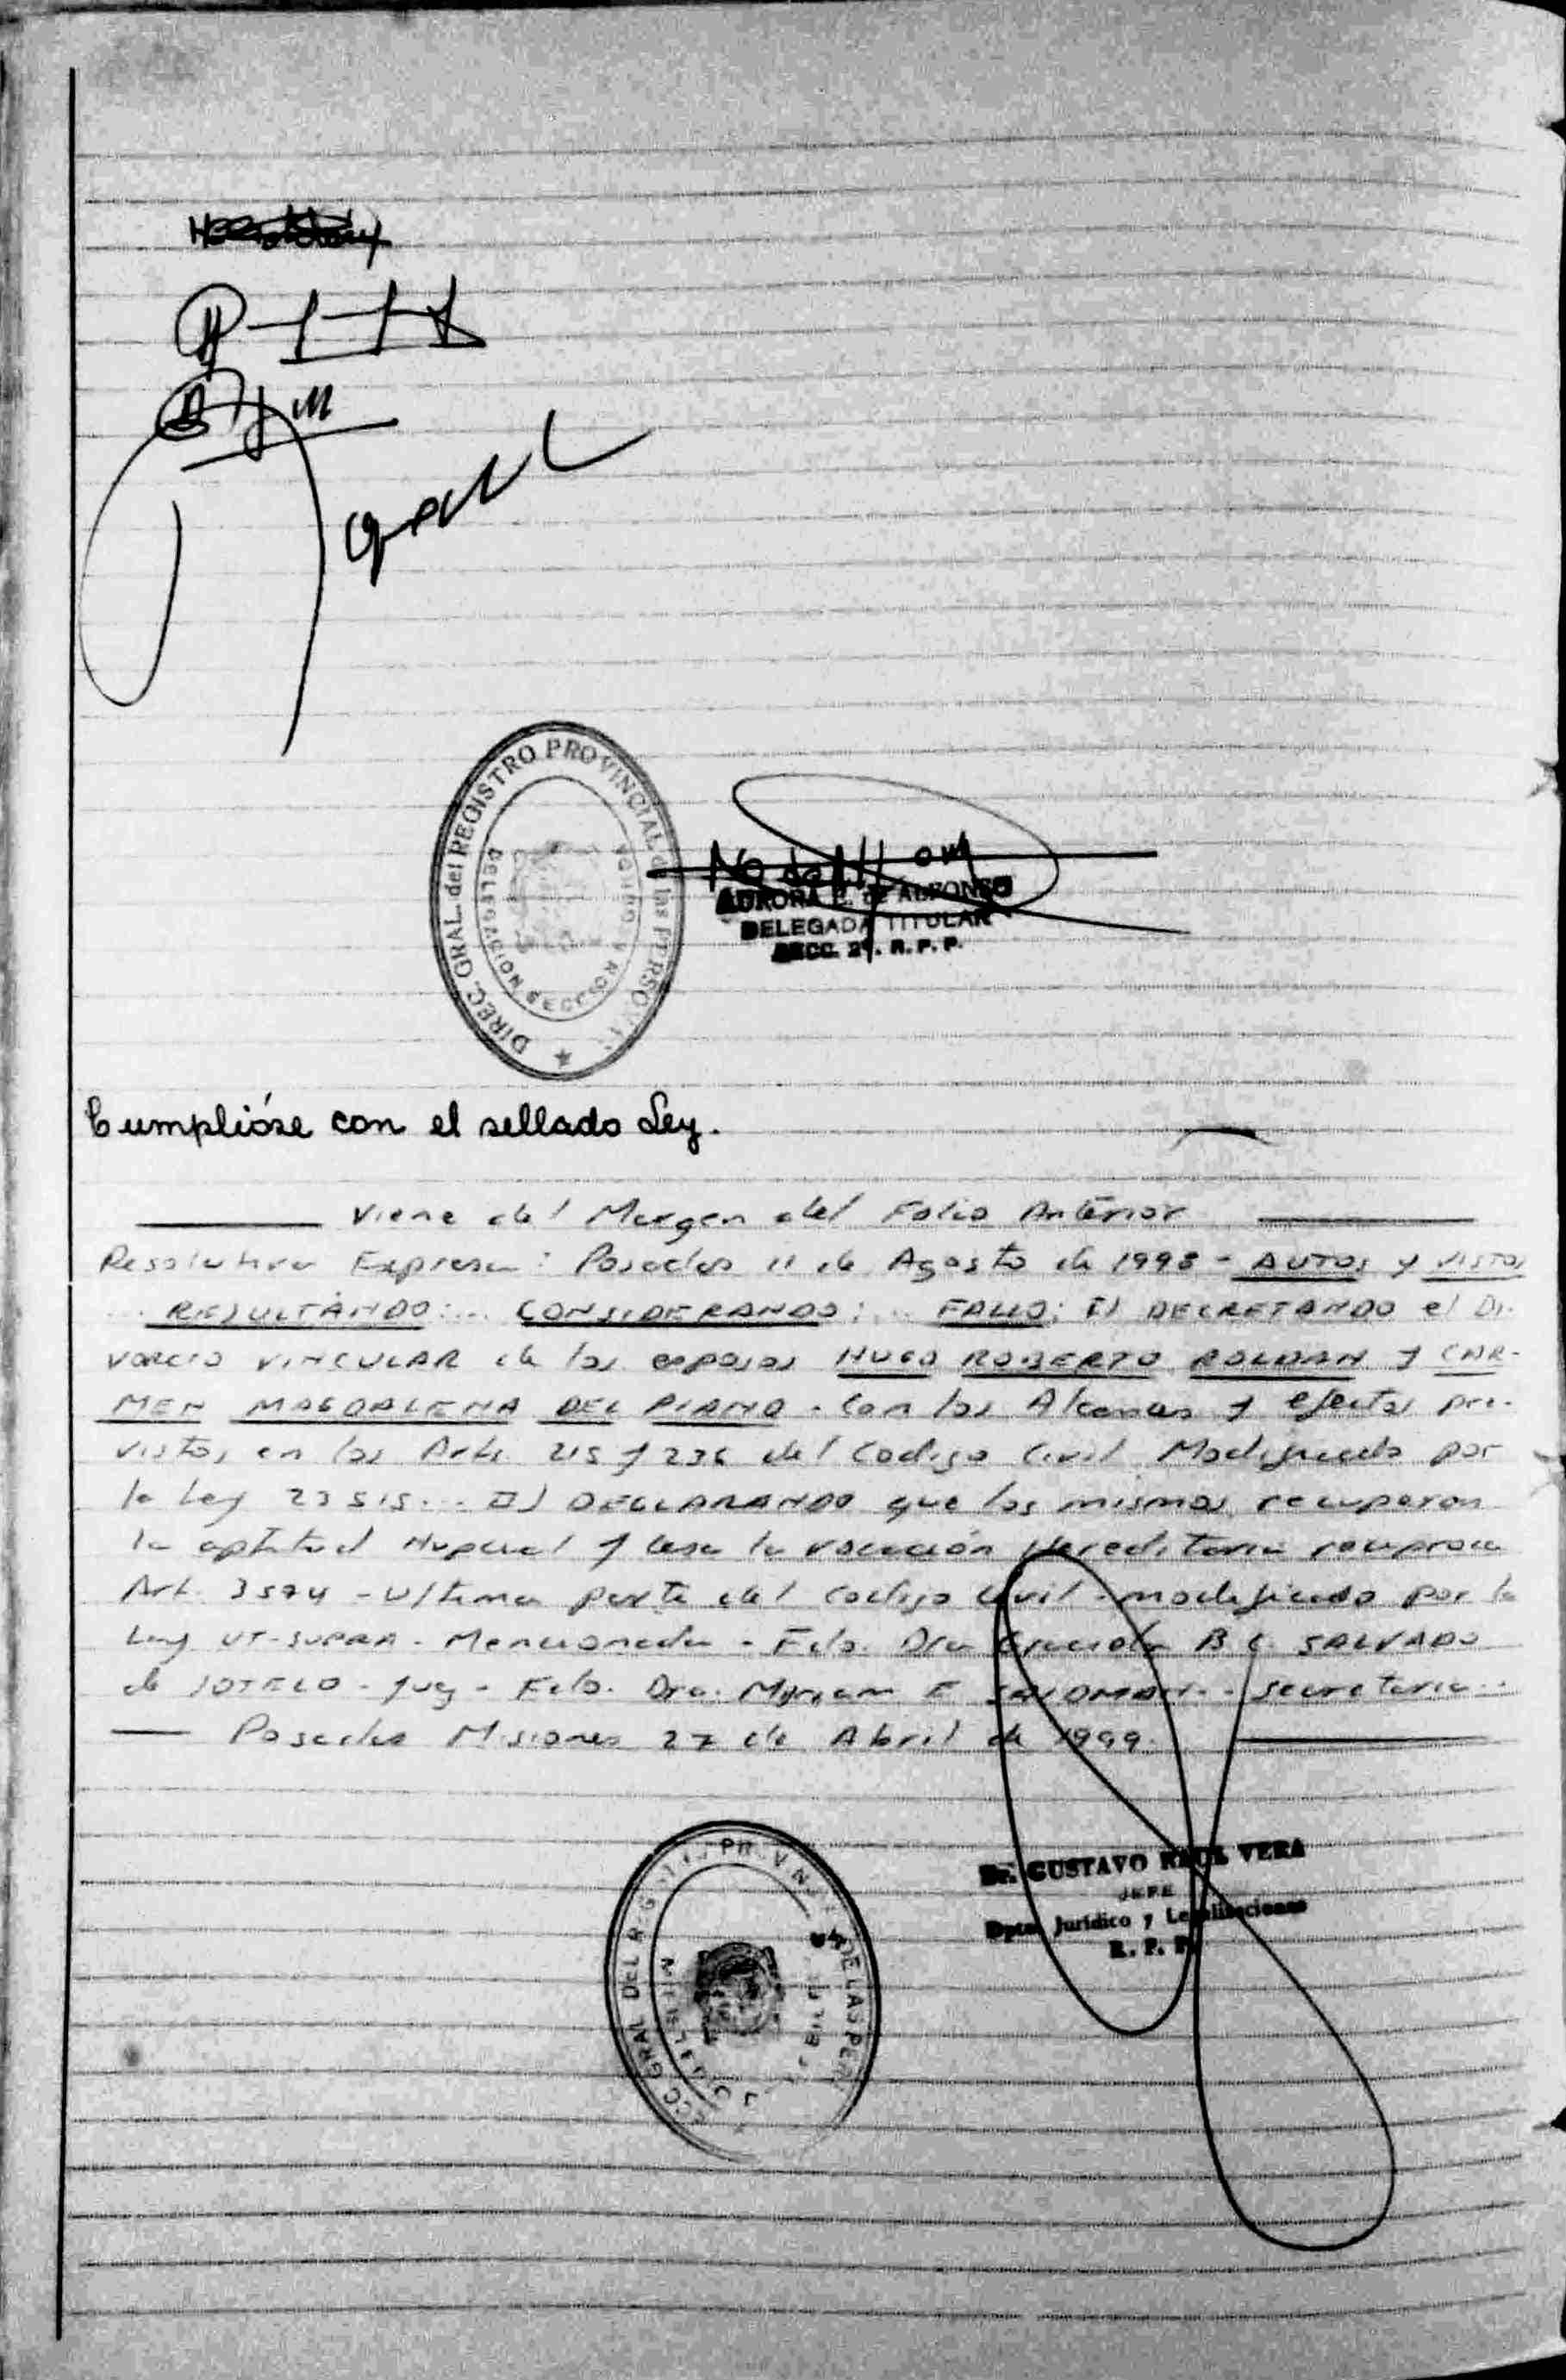 DIREC. GRAL. del REGISTRO PROVINCIAL de las PERSON
DELEGACION SECCION
AURORA E. de ALFONSO
DELEGADA TITULAR
SECC. 2ª. R. P. P.
Cumplióse con el sellado Ley.
Viene del Margen del Folio Anterior
Resolutiva Expresa: Posadas 11 de Agosto de 1998 - AUTOS y VISTOS
... RESULTANDO:... CONSIDERANDO:... FALLO: I) DECRETANDO el Di-
vorcio VINCULAR de los esposos HUGO ROBERTO ROLDAN y CAR-
MEN MAGDALENA DEL PIANO. Con los Alcances y efectos pre-
vistos en los Arts. 215 y 236 del Codigo Civil Modificado por
la Ley 23515... II) DECLARANDO que los mismos recuperan
la aptitud Nupcial y cesa la vocación Hereditaria reciproca
Art. 3574 - Ultima parte del Codigo Civil - modificado por la
Ley UT-SUPRA - Mencionada - Fdo. Dra Graciela B C. SALVADO
de SOTELO - Juez - Fdo. Dra. Myriam E - Secretaria..
Posadas Misiones 27 de Abril de 1999.
DEL PROVIN DE LAS PERS
Dr. GUSTAVO RAUL VERA
JEFE
Dpto. Jurídico y Legalizaciones
R. P. P.